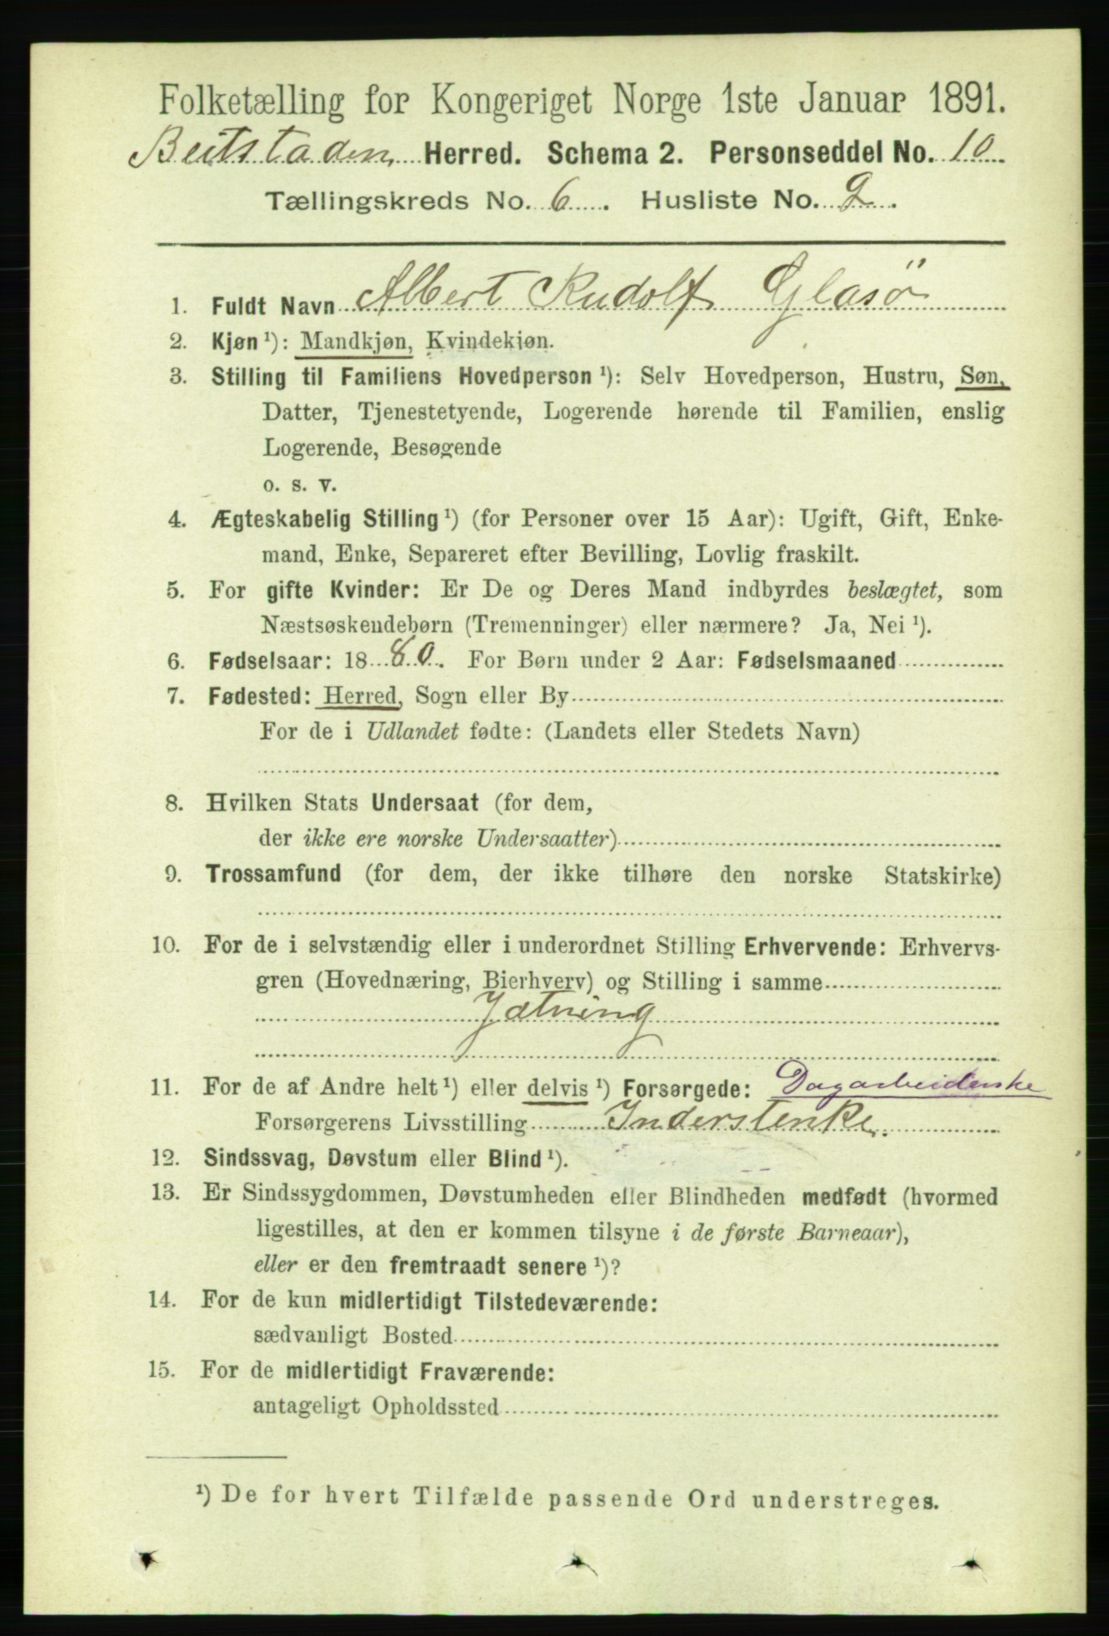 Folketælling for Kongeriget Norge 1ste Januar 1891.
Beitstaden Herred. Schema 2. Personseddel No. 10.
Tællingskreds No. 6. Husliste No. 2.
1. Fuldt Navn Albert Rudolf Glasö
2. Kjøn ¹): Mandkjøn, Kvindekjøn.
3. Stilling til Familiens Hovedperson ¹): Selv Hovedperson, Hustru, Søn,
Datter, Tjenestetyende, Logerende hørende til Familien, enslig
Logerende, Besøgende
o. s. v.
4. Ægteskabelig Stilling ¹) (for Personer over 15 Aar): Ugift, Gift, Enke-
mand, Enke, Separeret efter Bevilling, Lovlig fraskilt.
5. For gifte Kvinder: Er De og Deres Mand indbyrdes beslægtet, som
Næstsøskendebørn (Tremenninger) eller nærmere? Ja, Nei ¹).
6. Fødselsaar: 1880. For Børn under 2 Aar: Fødselsmaaned
7. Fødested: Herred, Sogn eller By
For de i Udlandet fødte: (Landets eller Stedets Navn)
8. Hvilken Stats Undersaat (for dem,
der ikke ere norske Undersaatter)
9. Trossamfund (for dem, der ikke tilhøre den norske Statskirke)
10. For de i selvstændig eller i underordnet Stilling Erhvervende: Erhvervs-
gren (Hovednæring, Bierhverv) og Stilling i samme
Jætning
11. For de af Andre helt ¹) eller delvis ¹) Forsørgede: Dagarbeiderske
Forsørgerens Livsstilling Inderstenke.
12. Sindssvag, Døvstum eller Blind ¹).
13. Er Sindssygdommen, Døvstumheden eller Blindheden medfødt (hvormed
ligestilles, at den er kommen tilsyne i de første Barneaar),
eller er den fremtraadt senere ¹)?
14. For de kun midlertidigt Tilstedeværende:
sædvanligt Bosted
15. For de midlertidigt Fraværende:
antageligt Opholdssted
¹) De for hvert Tilfælde passende Ord understreges.